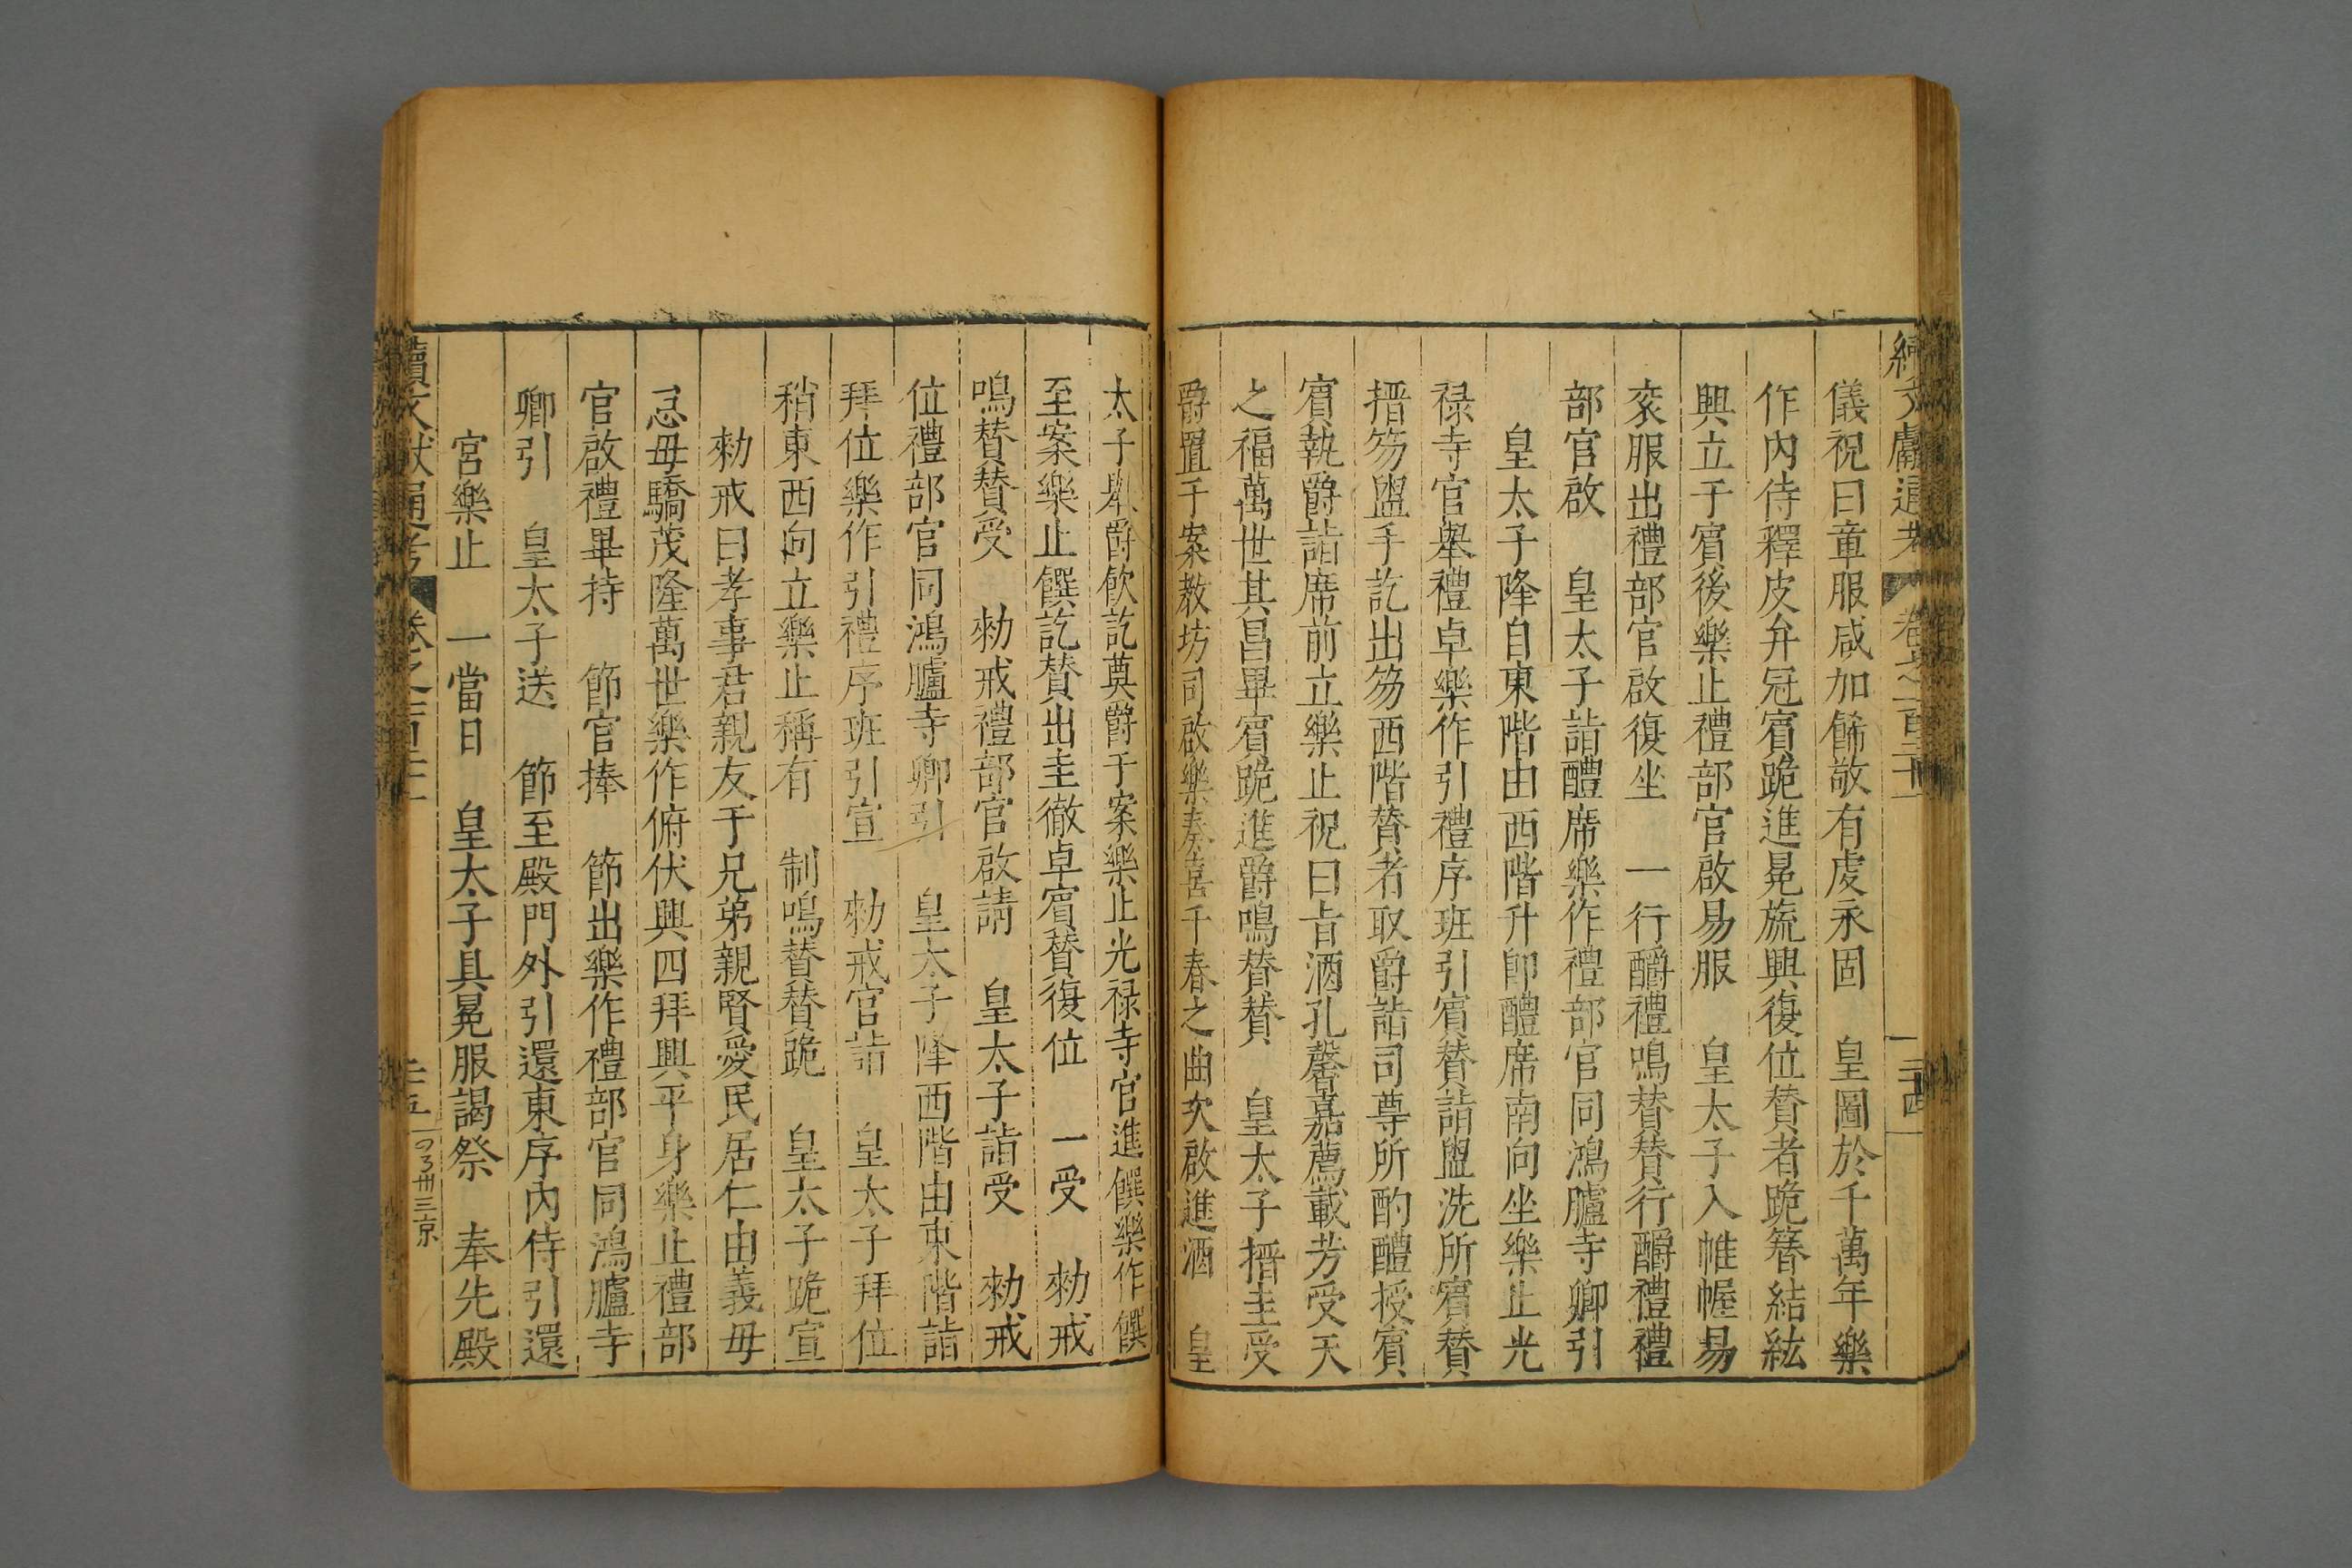 續文獻通考 卷之一百二十一 二十四
儀祝曰章服咸加餙敬有虔永固 皇圖於千萬年樂
作内侍釋皮弁冠賓跪進冕旒興復位賛者跪簪結紘
興立于賓後樂止禮部官啟易服 皇太子入帷幄易
衮服出禮部官啟復坐 一行醮禮鳴賛賛行醮禮禮
部官啟 皇太子詣醴席樂作禮部官同鴻臚寺卿引
皇太子降自東階由西階升卽醴席南向坐樂止光
禄寺官舉禮卓樂作引禮序班引賓賛詣盥洗所賓賛
搢笏盥手訖出笏西階賛者取爵詣司尊所酌醴授賓
賓執爵詣席前立樂止祝曰旨酒孔馨嘉薦載芳受天
之福萬世其昌畢賓跪進爵鳴賛賛 皇太子搢圭受
爵置于案教坊司啟樂奏喜千春之曲次啟進酒 皇
太子舉爵飲訖奠爵于案樂止光禄寺官進饌樂作饌
至案樂止饌訖賛出圭徹卓賓賛復位 一受 勑戒
鳴賛賛受 勑戒禮部官啟請 皇太子詣受 勑戒
位禮部官同鴻臚寺卿引 皇太子降西階由東階詣
拜位樂作引禮序班引宣 勑戒官詣 皇太子拜位
稍東西向立樂止稱有 制鳴賛賛跪 皇太子跪宣
勑戒曰孝事君親友于兄弟親賢愛民居仁由義毋
忌毋驕茂隆萬世樂作俯伏興四拜興平身樂止禮部
官啟禮畢持 節官捧 節出樂作禮部官同鴻臚寺
卿引 皇太子送 節至殿門外引還東序内侍引還
宮樂止 一當日 皇太子具冕服謁祭 奉先殿
續文獻通考 卷之一百二十一 二十五